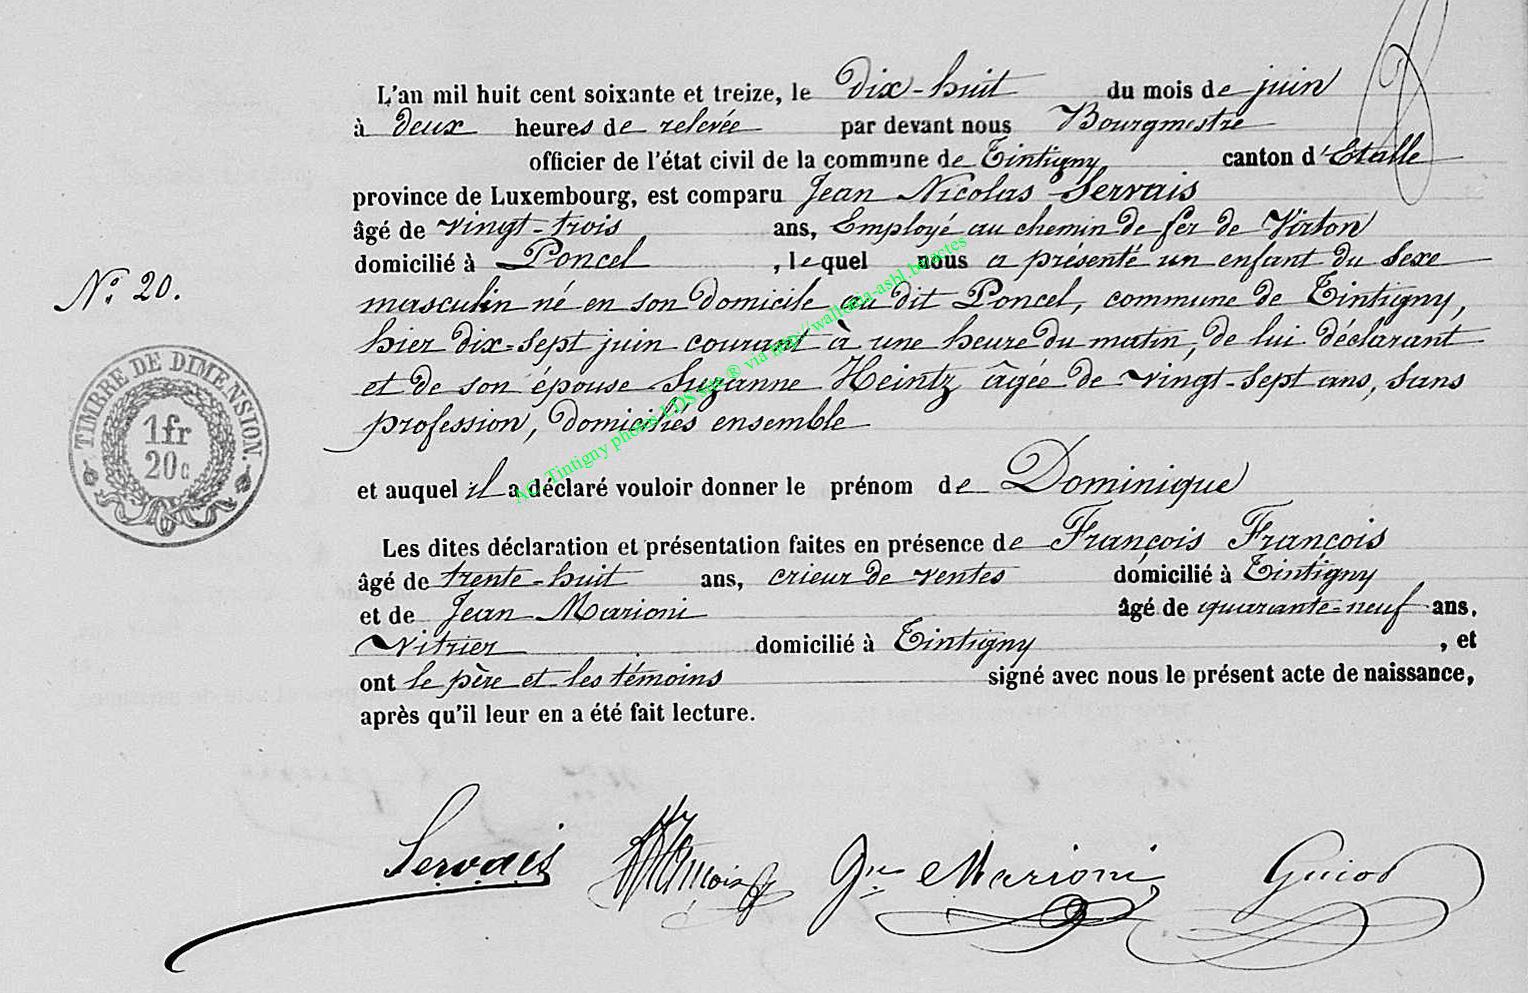 L'an mil huit cent soixante et treize, le dix-huit du mois de juin
à deux heures de relevée par devant nous Bourgmestre
officier de l'état civil de la commune de Tintigny canton d'Etalle
province de Luxembourg, est comparu Jean Nicolas Servais
âgé de vingt-trois ans, Employé au chemin de fer de Virton
domicilié à Poncel, lequel nous a présenté un enfant du sexe
N.° 20.
masculin né en son domicile au dit Poncel, commune de Tintigny,
hier dix-sept juin courant à une heure du matin, de lui déclarant
et de son épouse Suzanne Heintz âgée de vingt-sept ans, sans
profession, domiciliés ensemble
TIMBRE DE DIMENSION.
1fr
20c
et auquel il a déclaré vouloir donner le prénom de Dominique
Les dites déclaration et présentation faites en présence de François François
âgé de trente-huit ans, crieur de ventes domicilié à Tintigny
et de Jean Marioni âgé de quarante-neuf ans,
Vitrier domicilié à Tintigny, et
ont le père et les témoins signé avec nous le présent acte de naissance,
après qu'il leur en a été fait lecture.
Servais François Marioni
via http://wallonia-asbl.be/actes